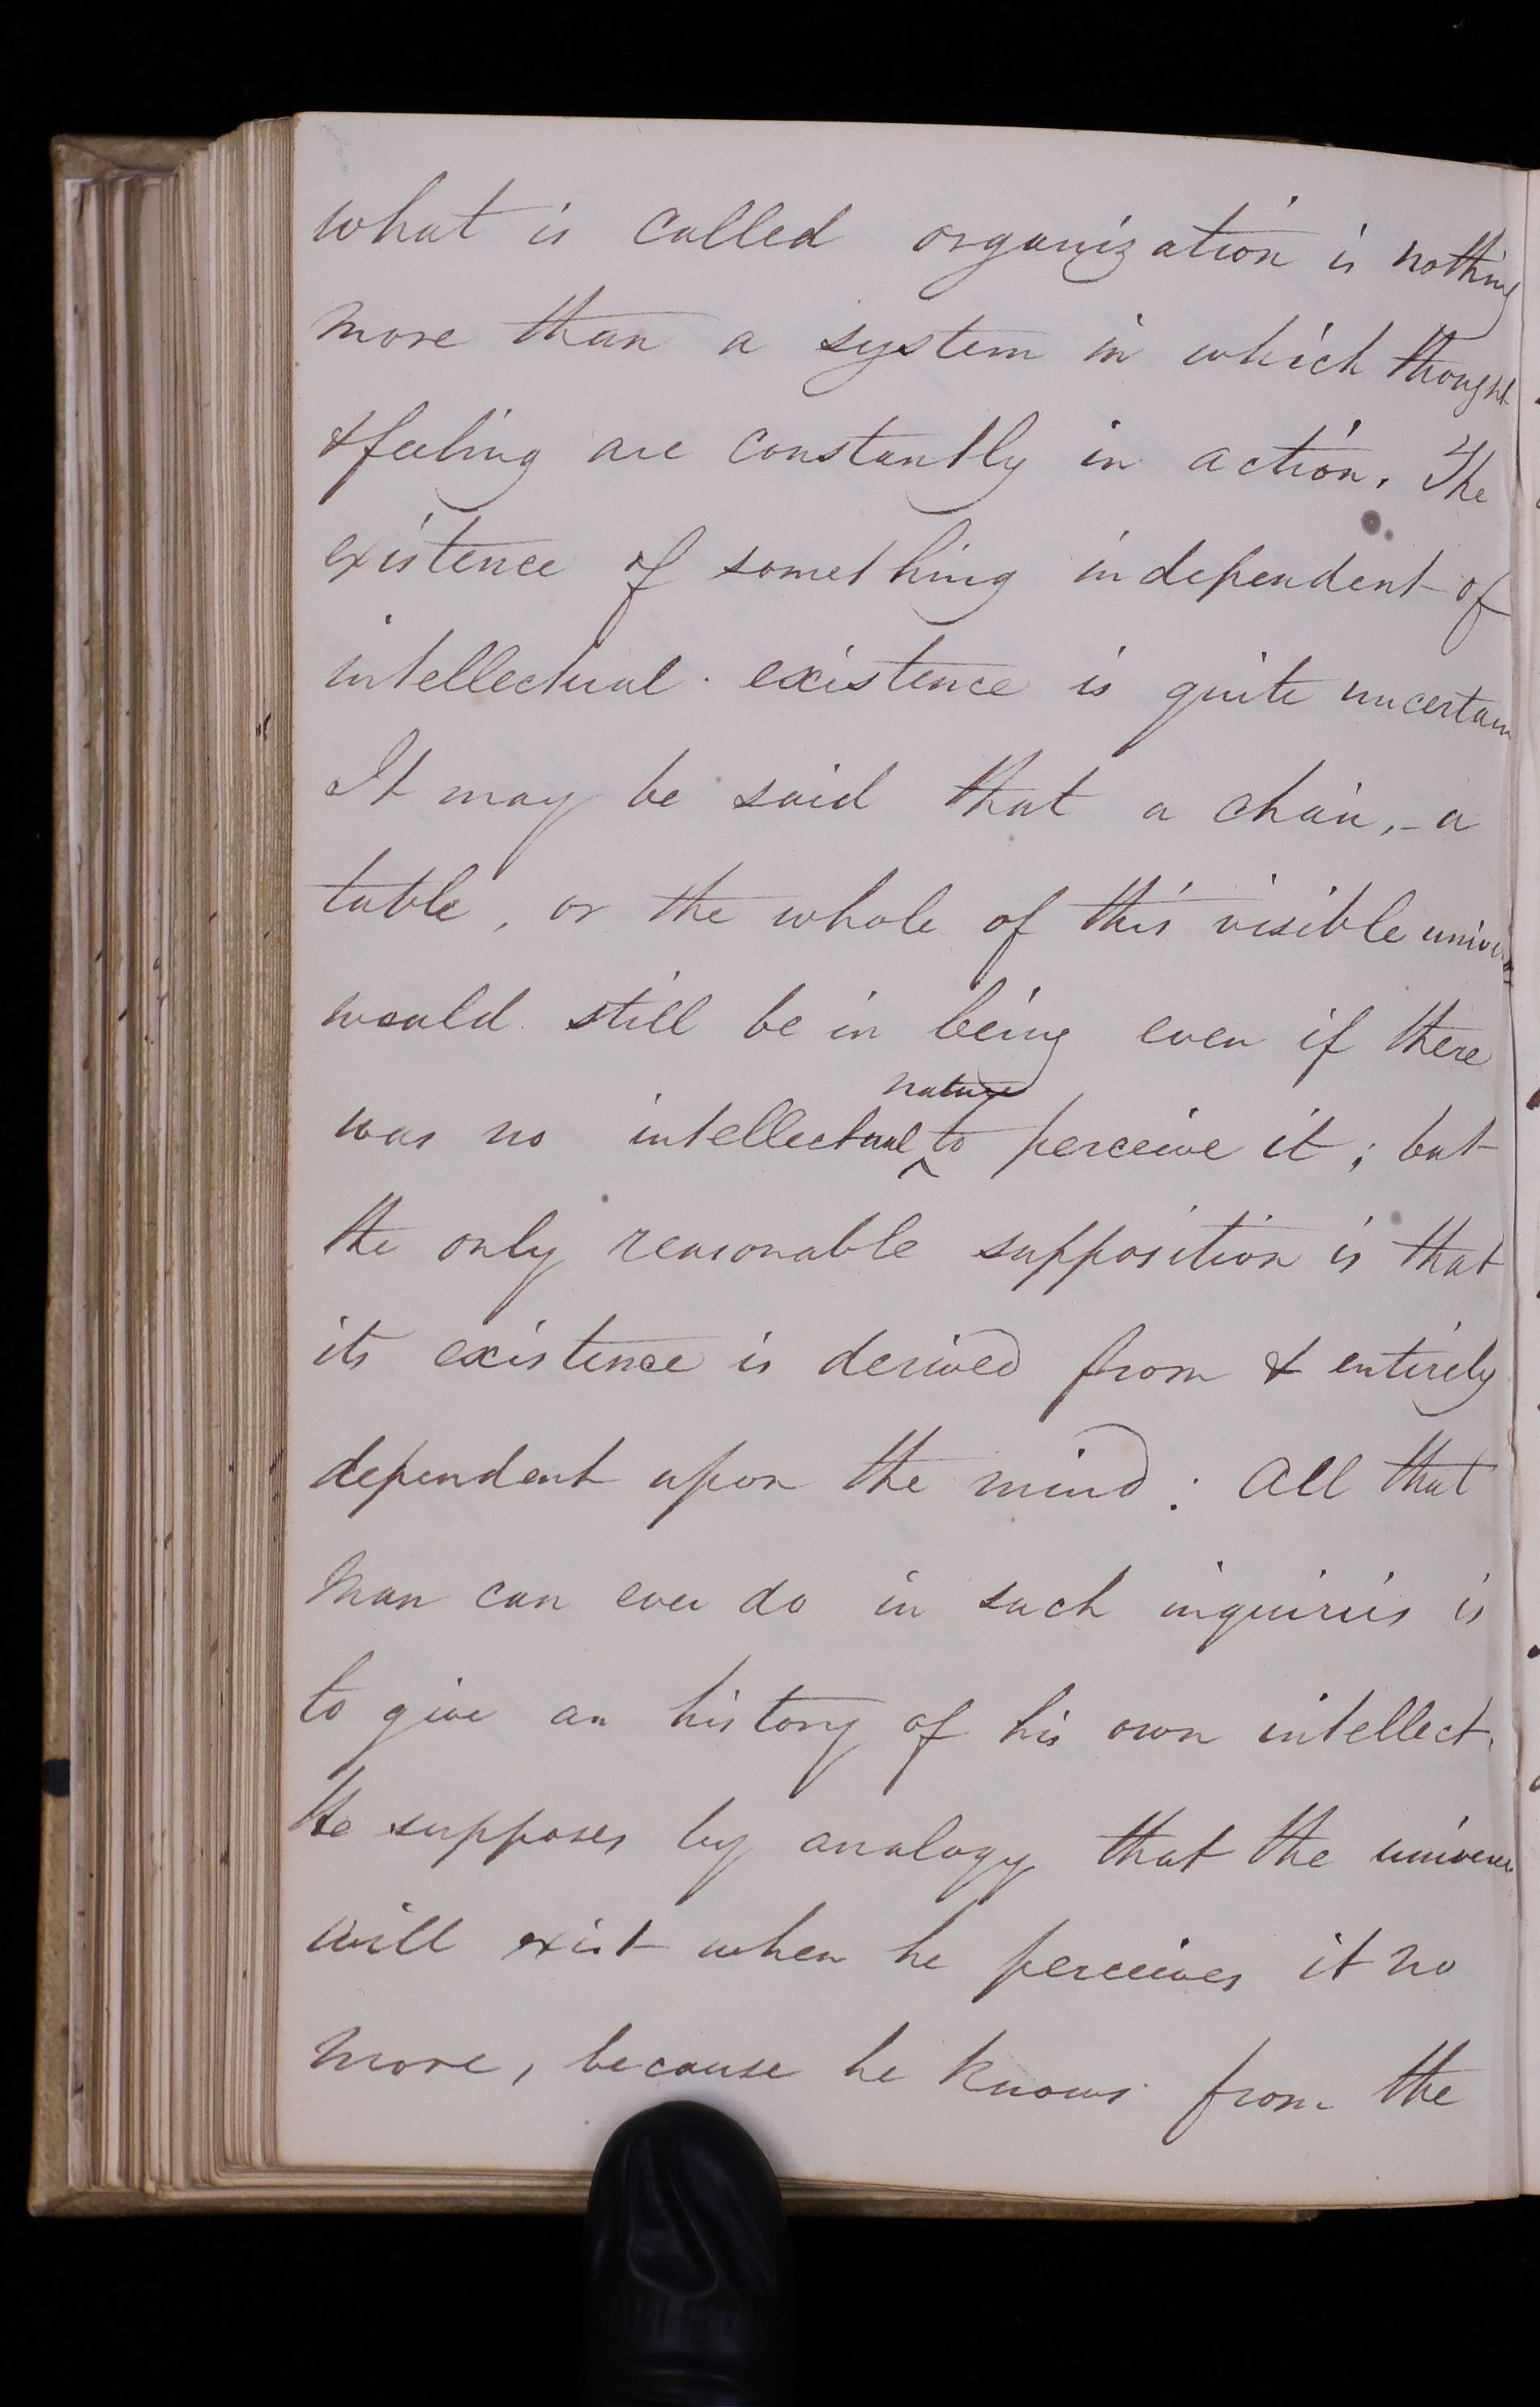 what is called organization is nothing
more than a system in which thought
& feeling are constantly in action. The
existence of something independent of
intellectual existence is quite uncertain
It may be said that a chair, - a
table, or the whole of this visible universe
would still be in being even if there
nature
was no intellectual ^ to perceive it; but
the only reasonable supposition is that
its existence is derived from & entirely
dependent upon the mind: All that
man can ever do in such inquiries is
to give an history of his own intellect.
He supposes by analogy that the universe
will exist when he perceives it no
more, because he knows from the